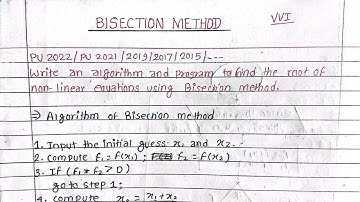 BISECTION METHOD
VVI
PU 2022/PU 2021/2019/2017/2015/---
Write an algorithm and program to find the root of
non-linear equations using Bisection method.
⇒ Algorithm of Bisection method
1. Input the initial guess x₁ and x₂.
2. compute f₁ = f(x₁) ; f₂ = f(x₂)
3. If (f₁ * f₂ > 0)
go to step 1;
4. compute x₀ = x₁+x₂